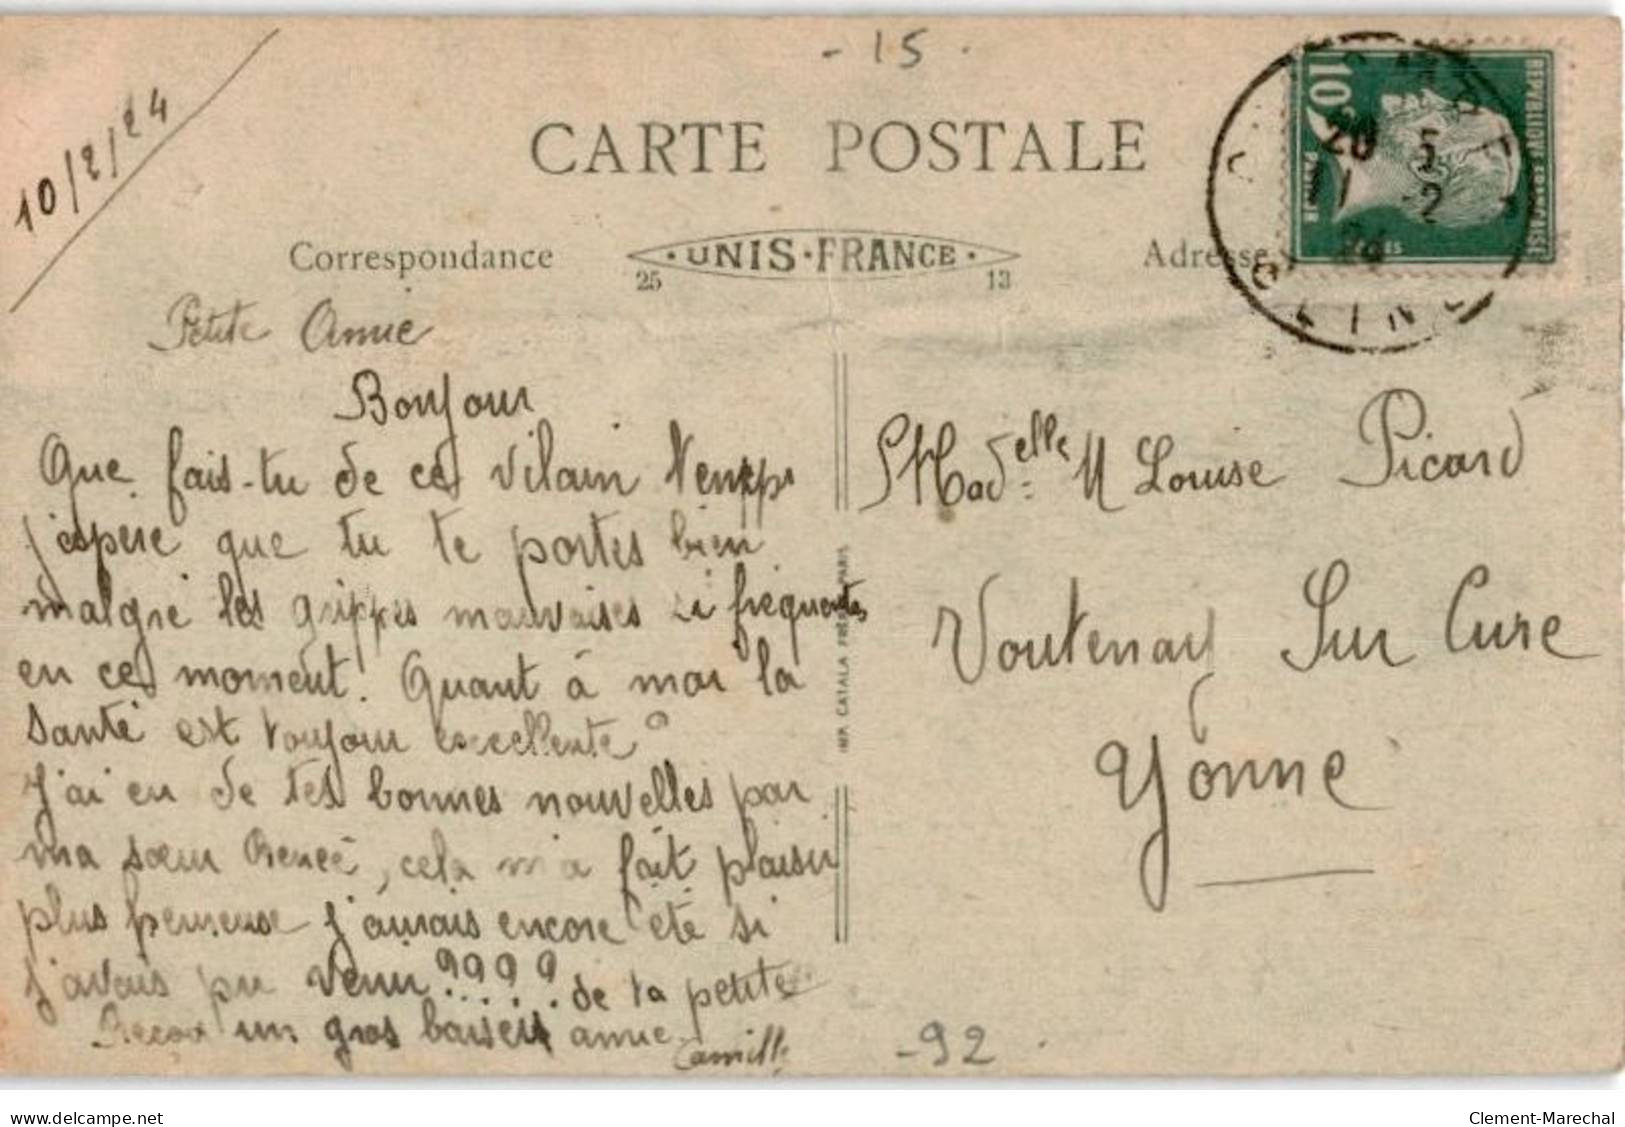 - 15.
10/2/24
CARTE POSTALE
Correspondance
UNIS·FRANCE
25 13
Adresse
10c
REPUBLIQUE FRANCAISE
POSTES
20
5 -2
24
SEINE
Petite Amie
Bonjour
Que fais-tu de ce vilain temps
j'espère que tu te portes bien
malgré les grippes mauvaises si fréquentes
en ce moment. Quant à moi la
santé est toujour excellente
J'ai eu de tes bonnes nouvelles par
ma sœur Renée, cela m'a fait plaisir
plus heureuse j'aurais encore été si
j'avais pu venir ????.....
de ta petite
Reçoi un gros baisers amie
Camille
Madelle M Louise Picard
Voutenay Sur Cure
Yonne
IMP. CATALA FRERES PARIS
- 92
delcampe.net
Clement-Marechal